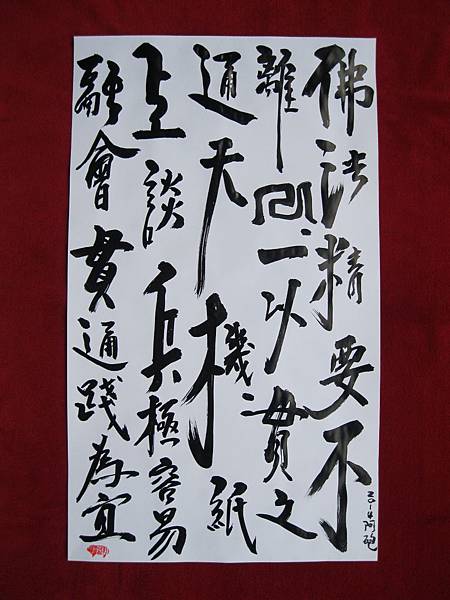 佛法精要不
離一以貫之
通天機紙
上談兵極容易
融會貫通踐為宜
2014阿砲